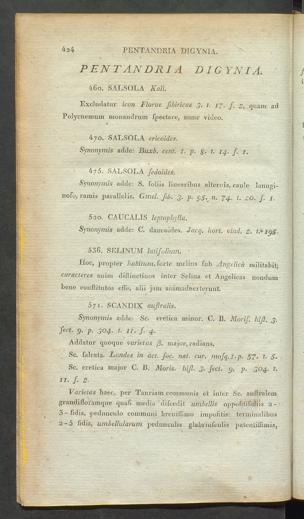 424 PENTANDRIA DIGYNIA.
PENTANDRIA DIGYNIA.
460. SALSOLA Kali.
Excludatur icon Florae sibiricae 3. t. 17. f. 2, quam ad
Polycnemum monandrum spectare, nunc video.
470. SALSOLA ericoides.
Synonymis adde: Buxb. cent. 1. p. 8. t. 14. f. 1.
475. SALSOLA sedoides.
Synonymis adde: S. foliis linearibus alternis, caule lanugi-
noso, ramis parallelis. Gmel. sib. 3. p. 95. n. 74. t. 20. f. 1.
520. CAUCALIS leptophylla.
Synonymis adde: C. daucoides. Jacq. hort. vind. 2. t. 195.
536. SELINUM latifolium.
Hoc, propter habitum, forte melius sub Angelica militabit;
caracteres enim distinctivos inter Selina et Angelicas nondum
bene constitutos esse, alii jam animadverterunt.
571. SCANDIX australis.
Synonymis adde: Sc. cretica minor. C. B. Moris. hist. 3.
sect. 9. p. 304. t. 11. f. 4.
Addatur quoque varietas β. major, radians.
Sc. falcata. Londes in act. soc. nat. cur. mosq. 1. p. 57. t. 5.
Sc. cretica major C. B. Moris. hist. 3. sect. 9. p. 304. t.
11. f. 2.
Varietas haec, per Tauriam communis et inter Sc. australem
grandifloramque quasi media discedit umbellis oppositifoliis 2-
3-fidis, pedunculo communi brevissimo impositis: terminalibus
2-5 fidis, umbellularum pedunculis glabriusculis patentissimis,